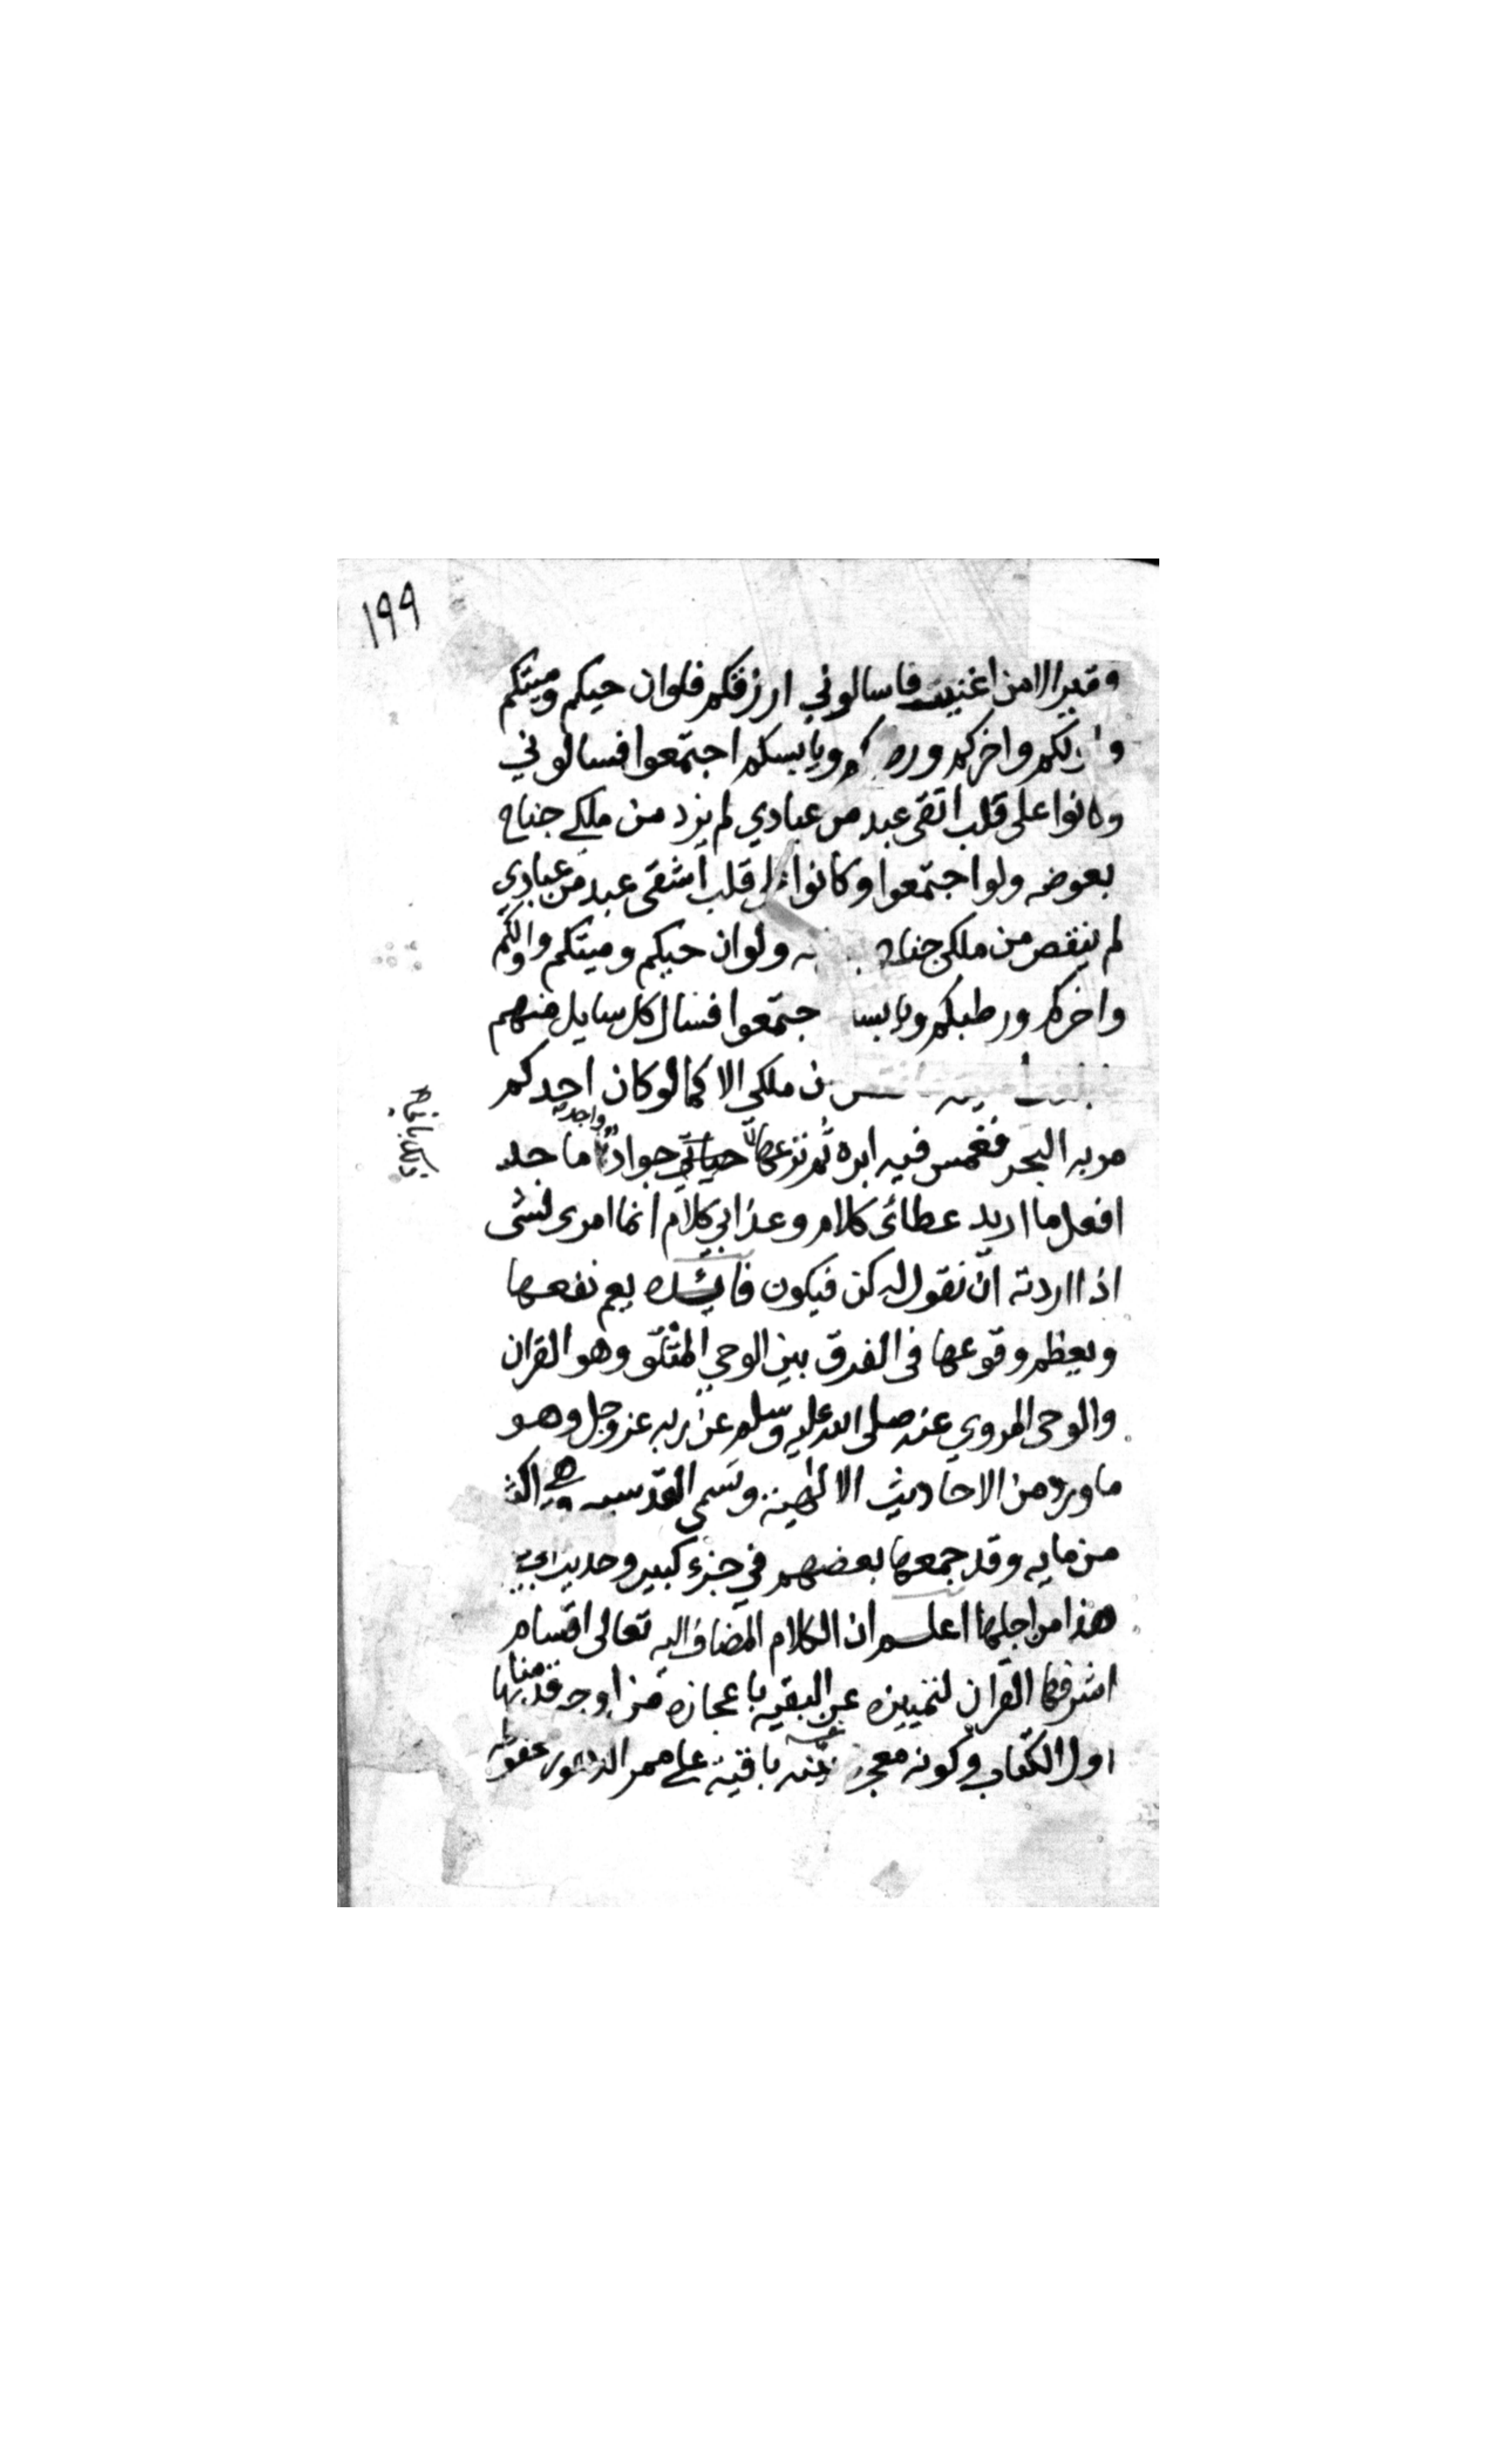 ١٩٩
وقير الا من اغنيت فاسالوني ارزقكم فلو ان حيكم وميتكم
واخركم ويابسكم اجتمعوا فسالوني
وكانوا على قلب اتقى عبد من عبادي لم يزد من ملكي جناح
بعوضه ولو اجتمعوا وكانوا قلب اشقى عبد من عبادي
لم ينقص من ملكي جناح ولو ان حيكم وميتكم واولكم
واخركم ورطبكم ويابسا جتمعوا فسال كل سايل منهم
ملكي الا كما لو كان احدكم
مر به البحر فغمس فيه ابره ثم نزعها جواد واجد ماجد
افعل ما اريد عطائي كلام وعذابي كلام انما امري لشي
اذا اردته ان نقول له كن فيكون فايده يعم نفعها
ويعظم وقوعها في الفرق بين الوحي المتلو وهو القران
والوحي المروي عنه صلى الله عليه وسلم عن ربه عز وجل وهو
ما ورد من الاحاديث الالهية وتسمى القدسيه وهي اكثر
من مايه وقد جمعها بعضهم في جزء كبير وحديث
هذا من اجلها اعلم ان الكلام المضاف اليه تعالى اقسام
اشرفها القران لتمييزه عن البقيه باعجازه من اوجه قدمناها
اول الكتاب وكونه معجزة باقية على ممر الدهور